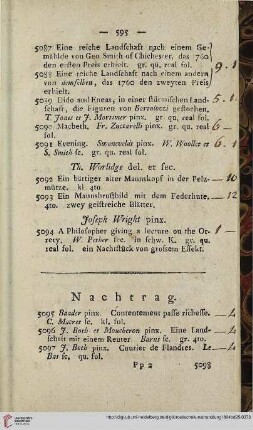 — 595 —
5087 Eine reiche Landschaft nach einem Ge-
mählde von Geo Smith of Chichester, das 1760
den ersten Preis erhielt. gr. qu. real fol.
9. 1
5088 Eine reiche Landschaft nach einem andern
von demselben, das 1760 den zweyten Preis
erhielt.
5089 Dido und Eneas, in einer stürmischen Land-
schaft, die Figuren von Bartolozzi gestochen,
5. 1
T. Jones et J. Mortimer pinx. gr. qu. real fol.
5090 Macbeth. Fr. Zuccarelli pinx. gr. qu. real
fol.
6 —
5091 Evening. Swanevelts pinx. W. Woollet et
S. Smith sc. gr. qu. real fol.
6. 1
Th. Worlidge del. et fec.
5092 Ein bärtiger alter Mannskopf in der Pelz-
mütze. kl. 4to.
— 10
5093 Ein Mannsbrustbild mit dem Federhute,
4to. zwey geistreiche Blätter.
— 12
Joseph Wright pinx.
5094 A Philosopher giving a lecture on the Or-
rery, W. Pether sc. in schw. K. gr. qu.
real fol. ein Nachtstück von grossem Effekt.
1 —
Nachtrag.
5095 Bauder pinx. Contentement passe richesse.
C. Macret sc. kl. fol.
— 4
5096 J. Both et Moucheron pinx. Eine Land-
schaft mit einem Reuter sc. qu. fol.
— 4
5097 J. Both pinx. Courier de Flandres. Le
Bas sc. qu. fol.
— 4
Pp 2
5098